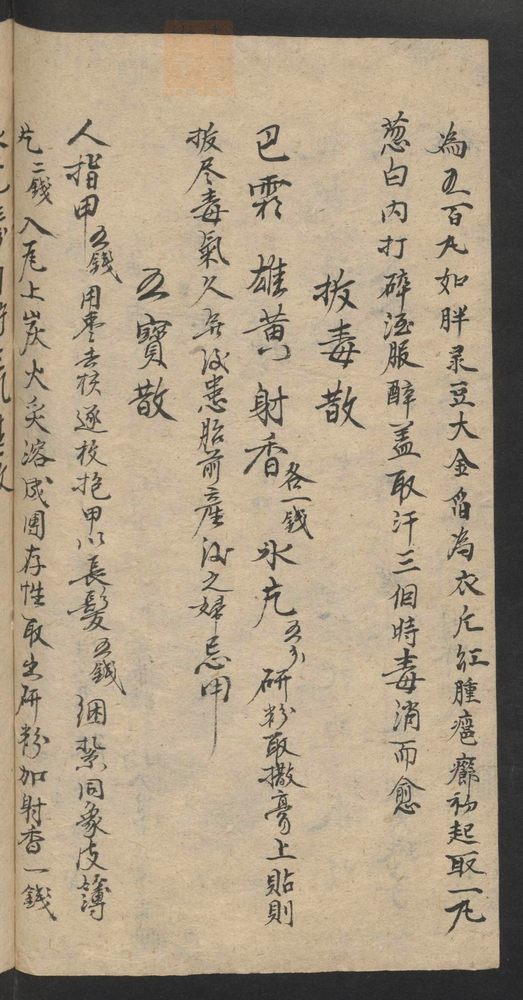 為五百丸如胖菉豆大金泊為衣凡紅腫瘡癤初起取一丸
葱白內打碎酒服醉盖取汗三個時毒消而愈
拔毒散
巴霜 雄黃 射香各一錢 氷片五分 研粉取撒膏上貼則
拔尽毒氣久無後患胎前產後之婦忌用
五寶散
人指甲五錢用枣去核逐枚抱甲以長髮五錢綑紮同象皮薄
片二錢入瓦上炭火炙溶成團存性取出研粉加射香一錢